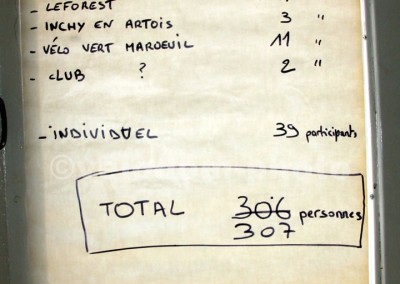 - LEFOREST
- INCHY EN ARTOIS 3 "
- VÉLO VERT MAROEUIL 11 "
- CLUB ? 2 "
- INDIVIDUEL 39 participants
TOTAL 306 personnes
307